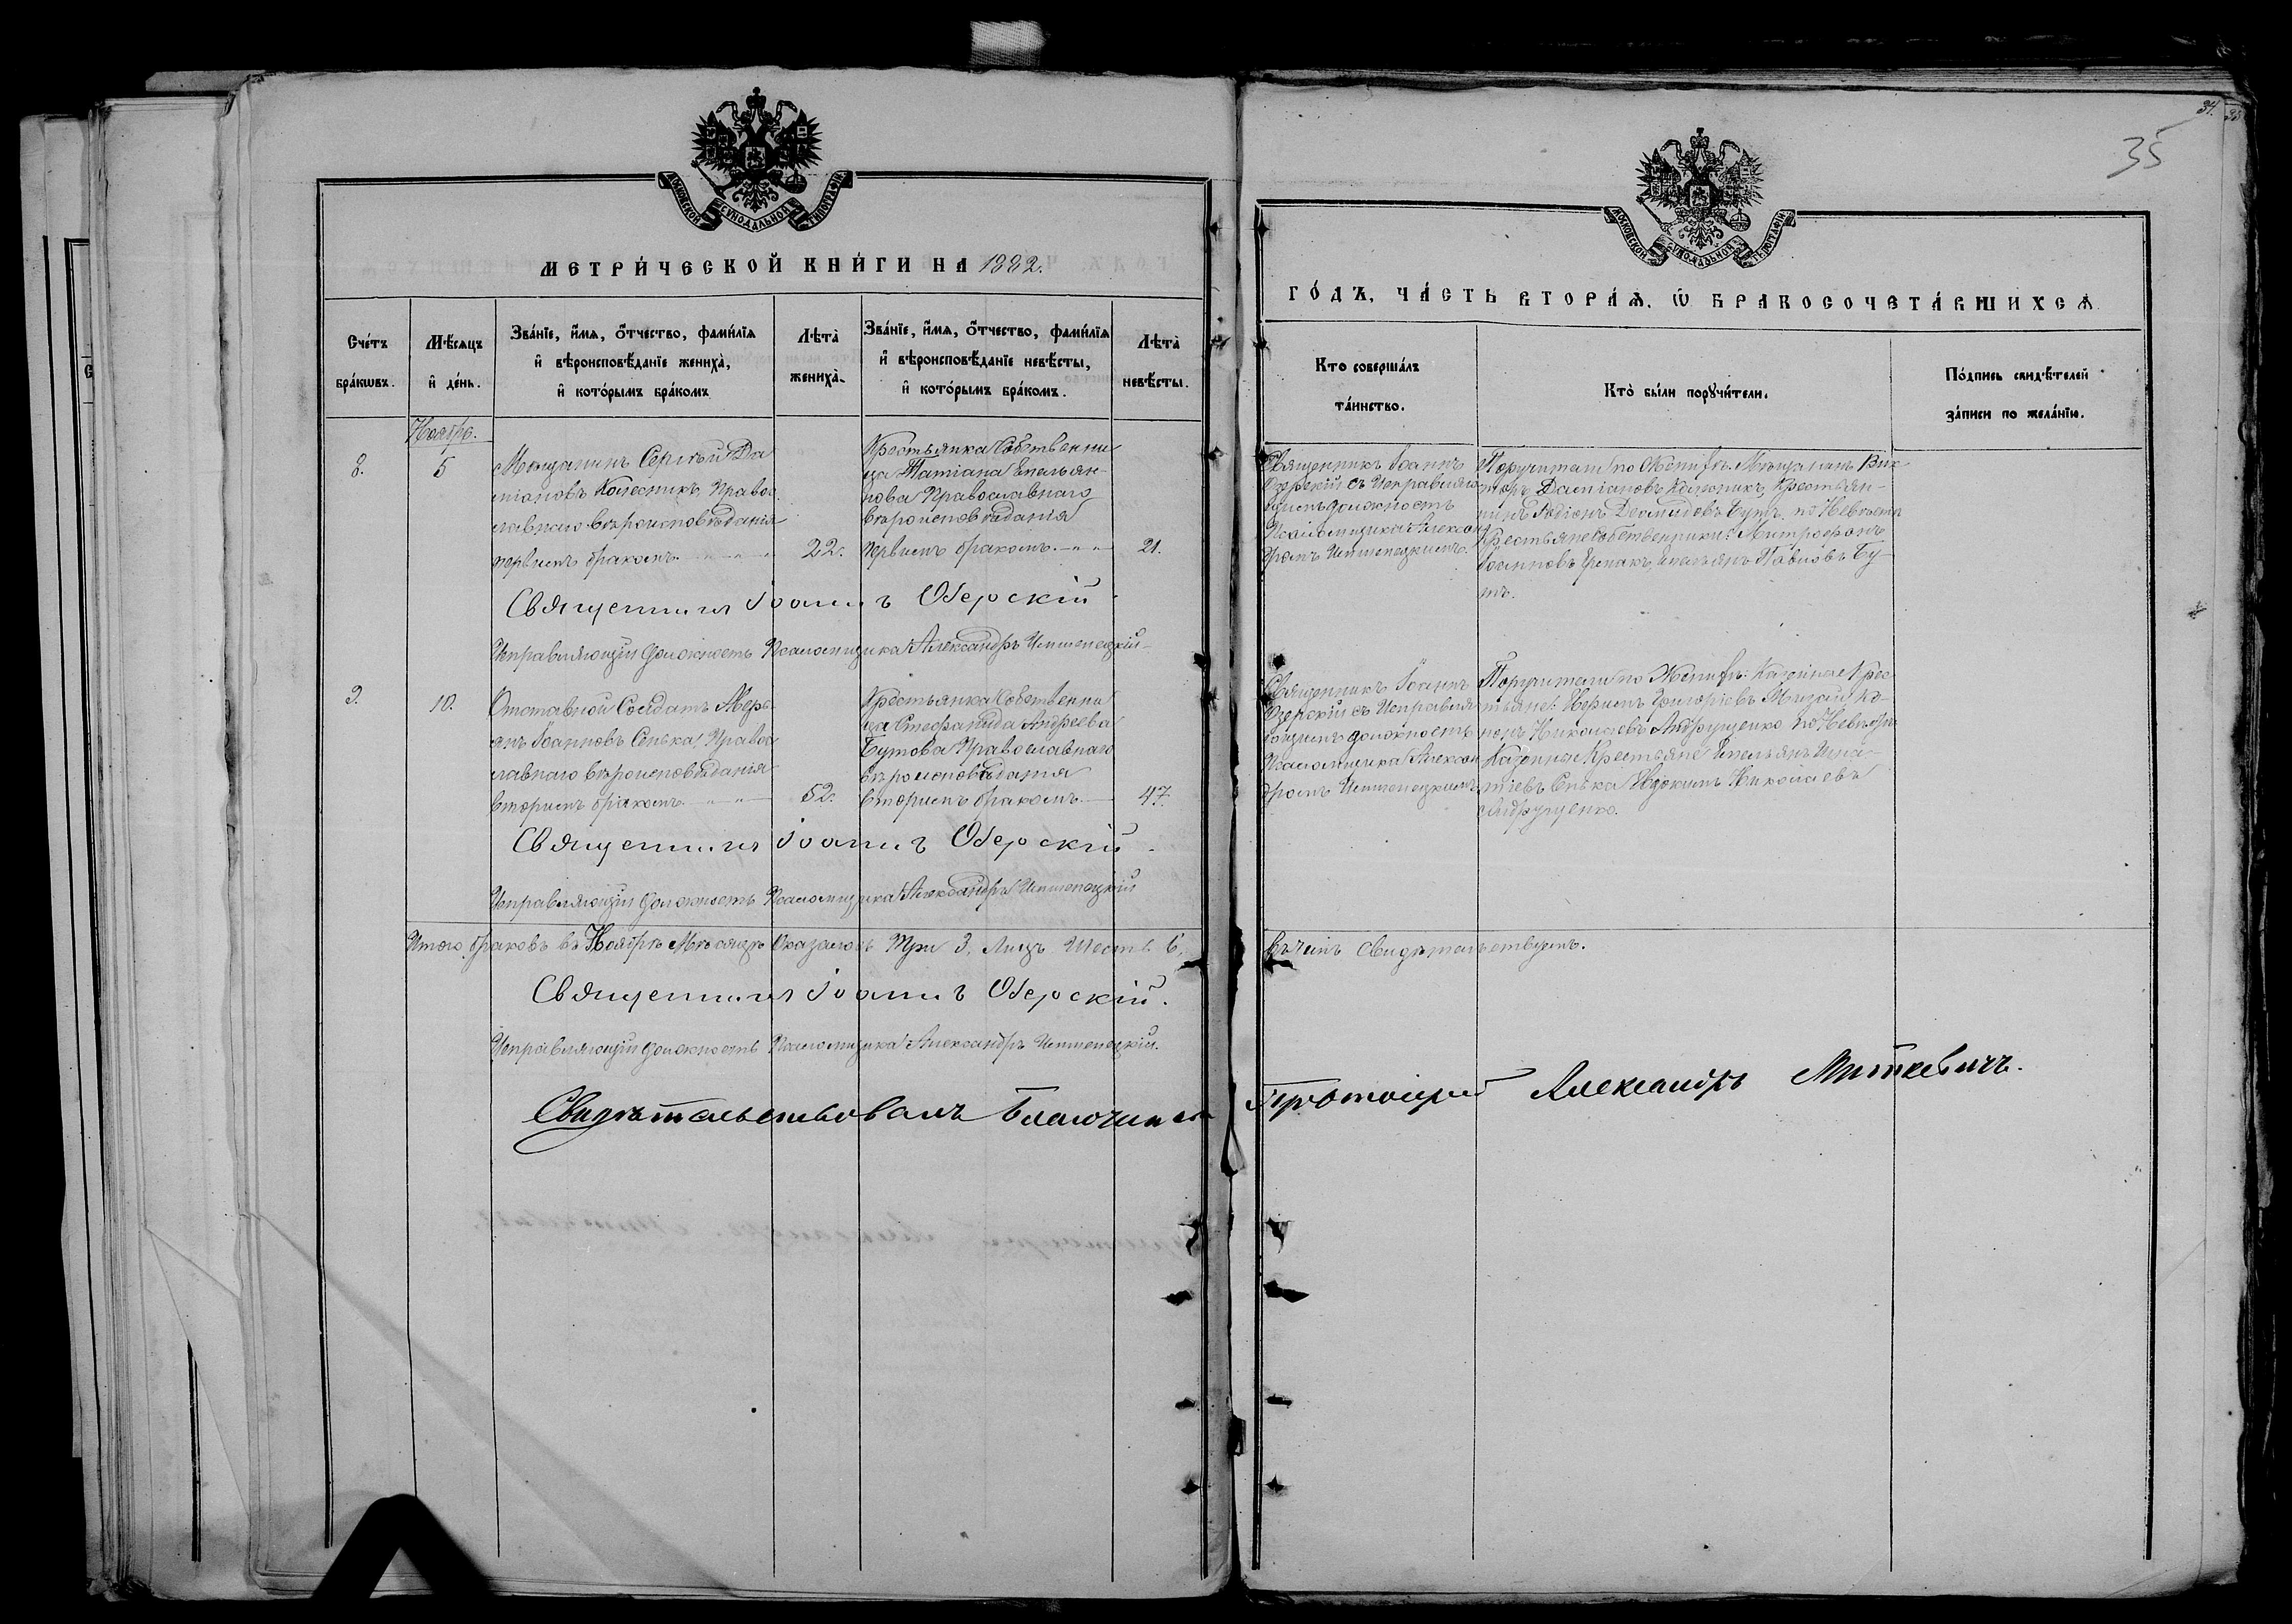 МОСКОВСКОЙ СѴНОДАЛЬНОЙ ТИПОГРАФІИ
МЕТРИ́ЧЕСКОЙ КНИ́ГИ НА 1882.
Сче́тъ бра́кѡвъ.
Мѣ́сяцъ и҆ де́нь.
Зва́нїе, и҆́мя, ѻ҆́тчество, фами́лїя
и҆ вѣроисповѣ́данїе жениха̀,
и҆ кото́рымъ бра́комъ
Лѣ́та̀ жениха̀.
Зва́нїе, и҆́мя, ѻ҆́тчество, фами́лїя
и҆ вѣроисповѣ́данїе невѣ́сты,
и҆ кото́рымъ бра́комъ.
Лѣ́та̀ невѣ́сты.
Ноябрь.
8.
5
Мещанинъ Сергѣй Да
міановъ Колесникъ, Правос
лавнаго вѣроисповѣданія
первымъ бракомъ.
22.
Крестьянка Собственни
ца Татіана Емельян-
нова Православнаго
вѣроисповѣданія
первымъ бракомъ.
21.
Священникъ Іоаннъ Озерскій
Исправляющій должность Псаломщика Александръ
9.
10.
Отставной Солдатъ
Іоанновъ Сенька, Правос
лавнаго вѣроисповѣданія
вторымъ бракомъ.
52.
Крестьянка Собственни
ца Стефанида Андреева
Бутова Православнаго
вѣроисповѣданія
вторымъ бракомъ.
47.
Священникъ Іоаннъ Озерскій.
Исправляющій должность Псаломщика Александръ
Итого браковъ въ Ноябрѣ Мѣсяцѣ Оказалось Три 3, Лицъ Шесть 6,
Священникъ Іоаннъ Озерскій.
Исправляющій должность Псаломщика Александръ
Свидѣтельствовалъ Благочинный
34.
35
МОСКОВСКОЙ СѴНОДАЛЬНОЙ ТИПОГРАФІИ
ГО́ДЪ, ЧА́СТЬ ВТОРА́Я, Ѡ҆ БРАКОСОЧЕТА́ВШИХСЯ
Кто соверша́лъ
та́инство.
Кто̀ бы́ли порꙋчи́тели.
По́дпись свидѣ́телей
за́писи по жела́нїю.
Священникъ Іоаннъ
Озерскій съ Исправляю
щимъ должность
Псаломщика Алексан
дромъ
Поручители по Женихѣ: Мѣщанинъ Вик
торъ Даміановъ Колесникъ, Крестьян-
инъ Демидовъ Бутъ. по Невѣстѣ
Крестьяне Собственники: Митрофанъ
Іоанновъ Емельянъ Павловъ Бу-
тъ.
Священникъ Іоаннъ
Озерскій съ Исправля
ющимъ должность
Псаломщика Алексан
дромъ
Поручители по Женихѣ: Казенные Крес
тьяне: Григоріевъ
Николаевъ Андрущенко по Невѣстѣ
Казенные Крестьяне Емельянъ Игна-
тіевъ Сенька Николаевъ
Андрущенко.
въ чемъ Свидѣтельствуемъ.
Протоіерей Александръ Миткевичъ.